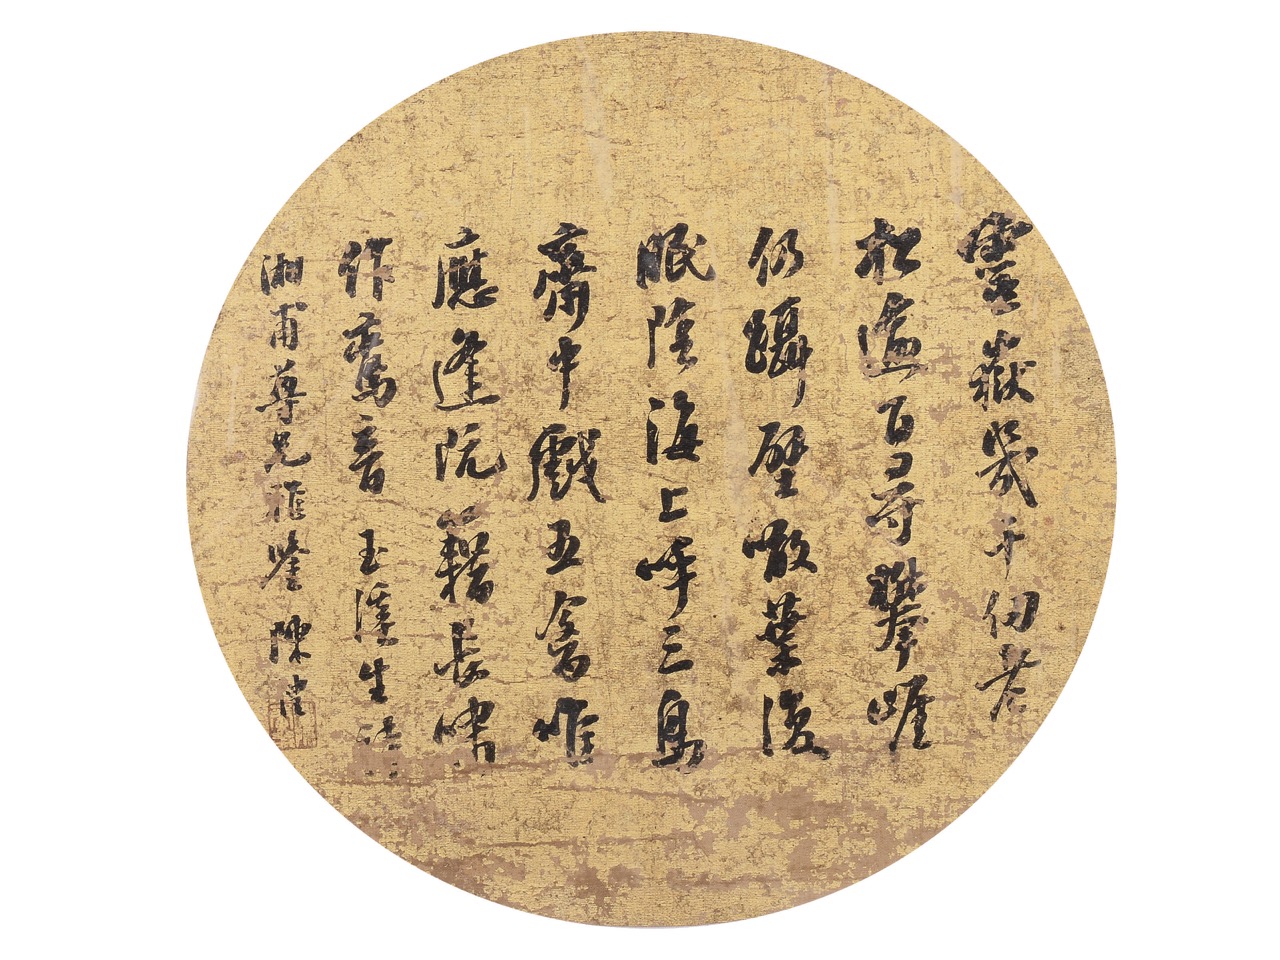 靈嶽幾千仞老
松逾百尋攀崖
仍躡壁噉葉復
眠陰海上呼三島
齋中戲五禽唯
應逢阮籍長嘯
作鸞音 玉溪生詩
湘甫尊兄雅鑒 陳